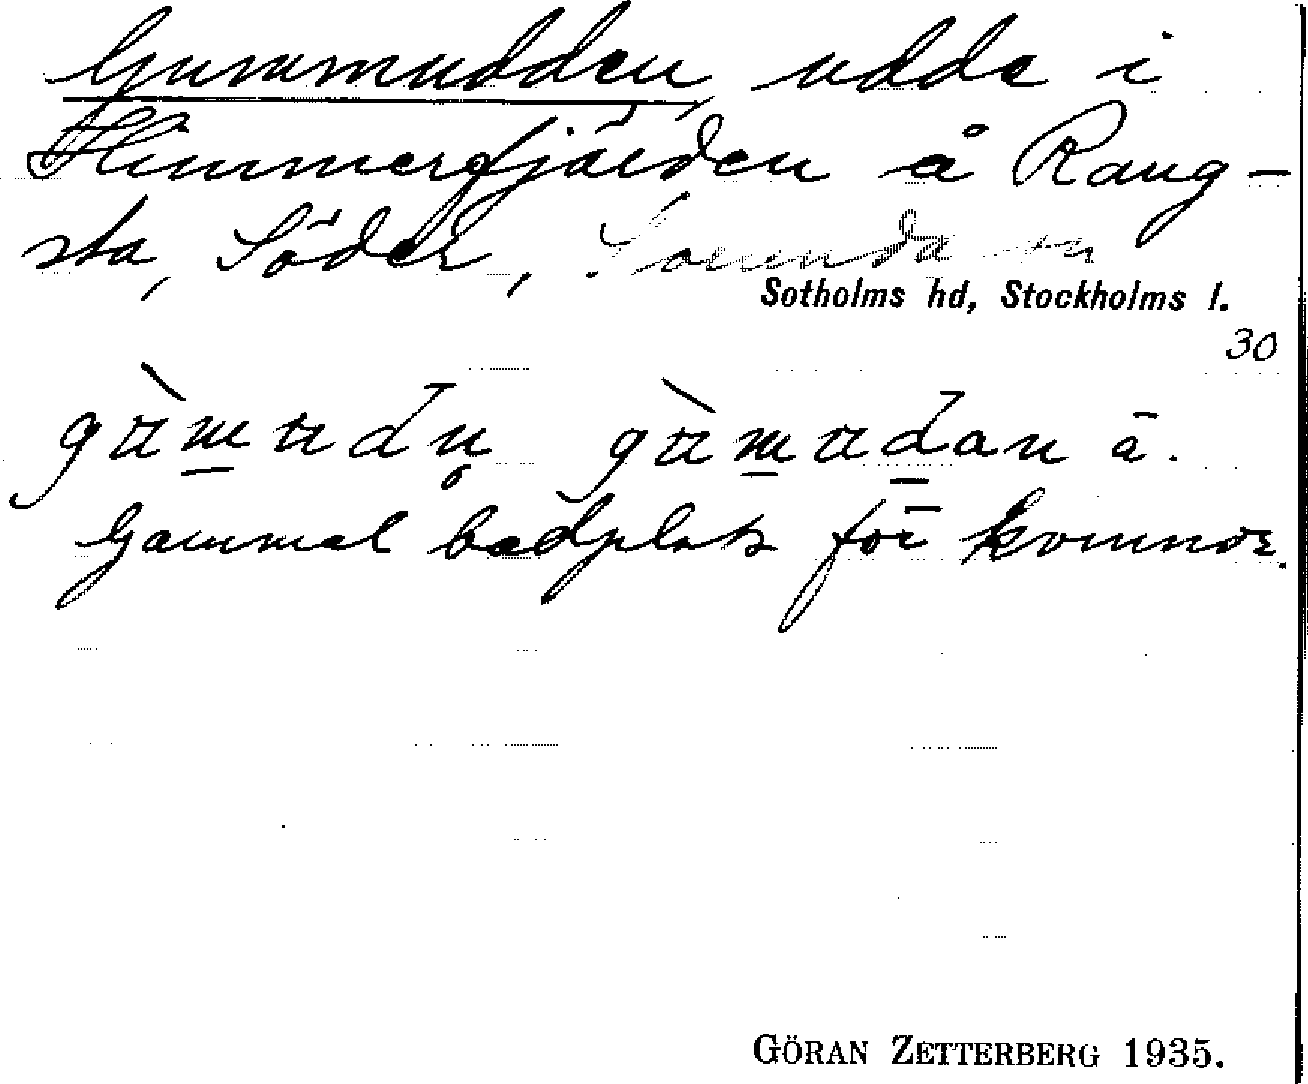 Gummudden, udde i
Himmerfjärden å Rang-
sta, Söder, Sorunda sn
Sotholms hd, Stockholms l.
30
Gammal badplats för kvinnor.
GÖRAN ZETTERBERG 1935.